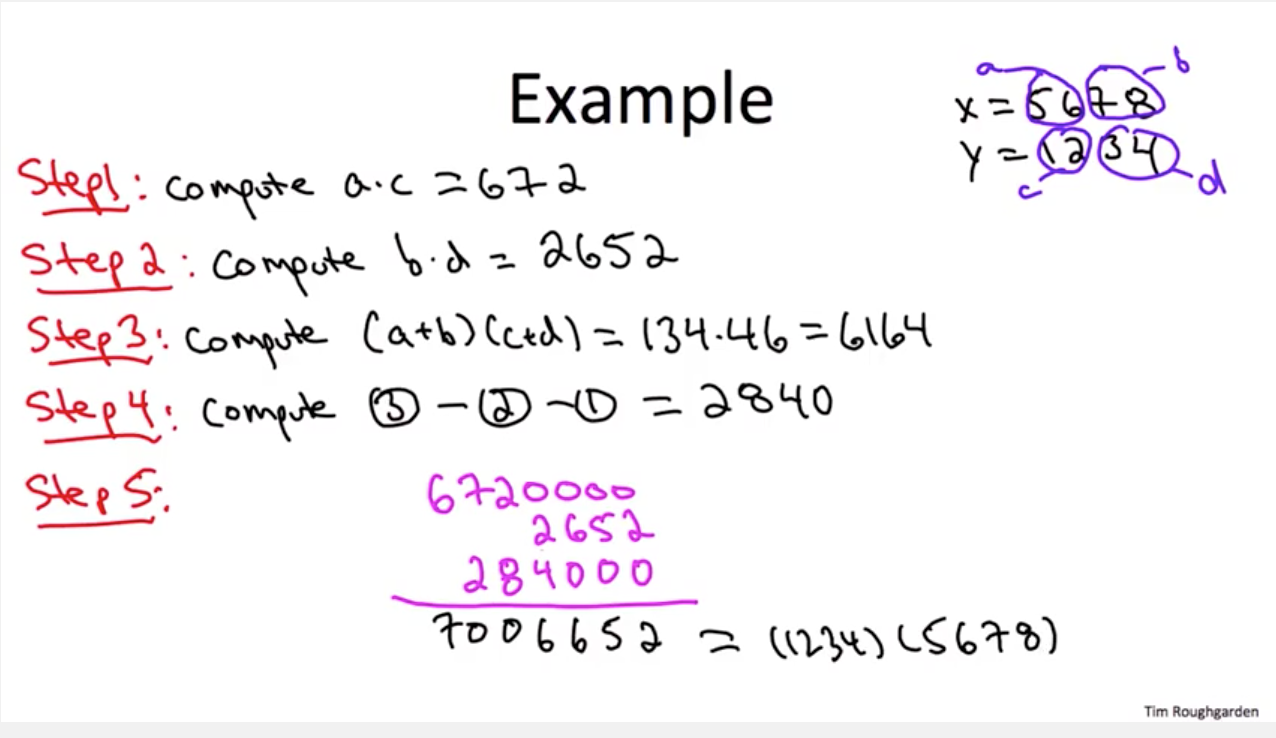 Example
a
b
x = 5678
y = 1234
c
d
Step1: compute a·c = 672
Step 2: compute b·d = 2652
Step3: compute (a+b)(c+d) = 134·46 = 6164
Step 4: compute ③ - ② - ① = 2840
Step 5:
6720000
2652
284000
7006652 = (1234)(5678)
Tim Roughgarden